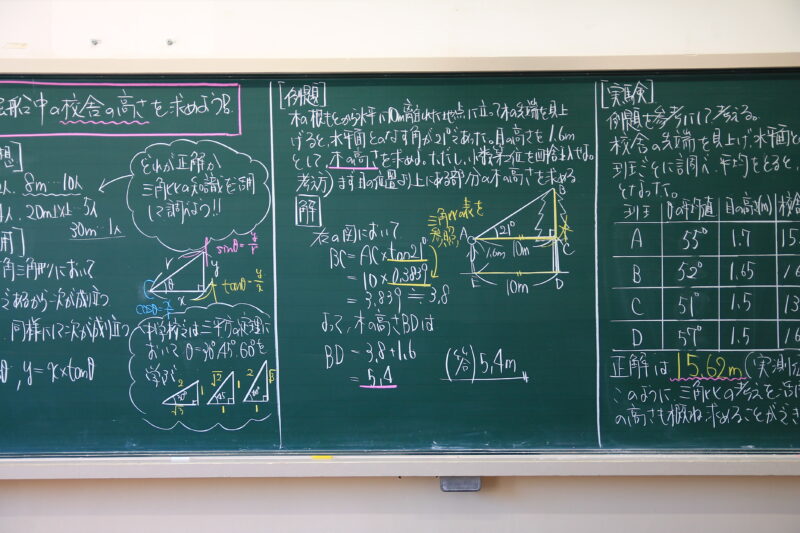 校舎の高さを求めよう!
8m…10人
20m以上 5人
30m 1人
どれが正解か
三角比の知識を用
いて調べよう!!
r
y
x
θ
sinθ=y/r
tanθ=y/x
cosθ=x/r
角三角形において
であるから次が成立つ
同様にして次が成立つ
, y=x×tanθ
中学校では三平方の定理に
おいてθ=30°,45°,60°を
学ぶ
2
1
√3
30°
√2
1
1
45°
2
√3
1
[例題]
木の根もとから水平に10m離れた地点に立って木の先端を見上
げると水平面とのなす角が21°であった。目の高さを1.6m
として、木の高さを求め
考え方) まず目の位置より上にある部分の木の高さを求める
[解]
右の図において
三角比の表を
参照
BC=AC×tan21°
=10×0.3839
=3.839≒3.8
よって、木の高さBDは
BD=3.8+1.6
=5.4
(答) 5.4m
A
B
C
D
E
21°
10m
1.6m
10m
[実験]
例題を参考にして考える。
校舎の先端を見上げ、水平面と
班ごとに調べ、平均をとると、
となった。
班 θの平均値 目の高さ(m) 校舎
A 55° 1.7 15.
B 52° 1.65 1
C 51° 1.5 13
D 57° 1.5 16
正解は 15.62m (実測
このように、三角比の考えを
の高さも概ね求めることができ